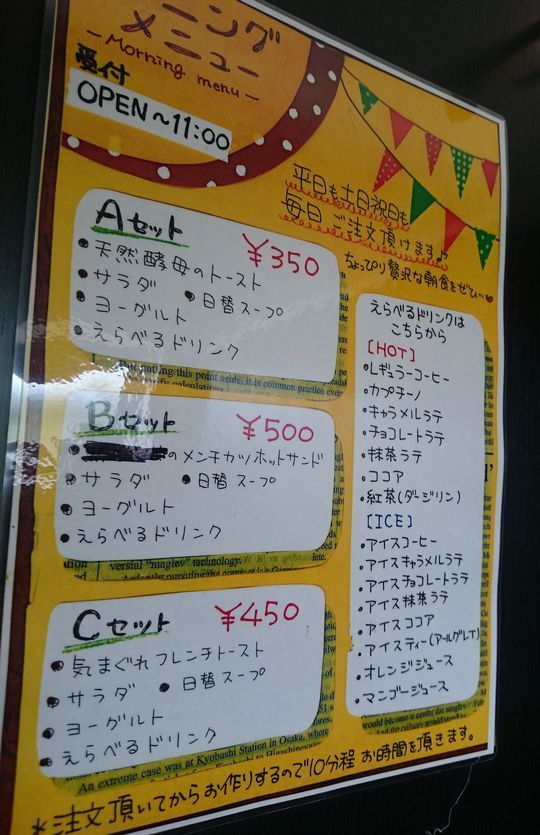 ーニング
メニュー
-Morning menu-
受付
OPEN~11:00
平日も土日祝日も
毎日ご注文頂けます♪
ちょっぴり贅沢な朝食をぜひ…♥
Aセット ¥350
•天然酵母のトースト
•サラダ •日替スープ
•ヨーグルト
•えらべるドリンク
But putting this point aside, it is common practice
Bセット ¥500
•のメンチカツホットサンド
•サラダ •日替スープ
•ヨーグルト
•えらべるドリンク
versial "maglev" technology.
Cセット ¥450
•気まぐれフレンチトースト
•サラダ •日替スープ
•ヨーグルト
•えらべるドリンク
An extreme case was at Kyobashi Station in Osaka, where
えらべるドリンクは
こちらから
[HOT]
•レギュラーコーヒー
•カプチーノ
•キャラメルラテ
•チョコレートラテ
•抹茶ラテ
•ココア
•紅茶(ダージリン)
[ICE]
•アイスコーヒー
•アイスキャラメルラテ
•アイスチョコレートラテ
•アイス抹茶ラテ
•アイスココア
•アイスティー(アールグレイ)
•オレンジジュース
•マンゴージュース
would become a center for maglev
※注文頂いてからお作りするので10分程お時間を頂きます。